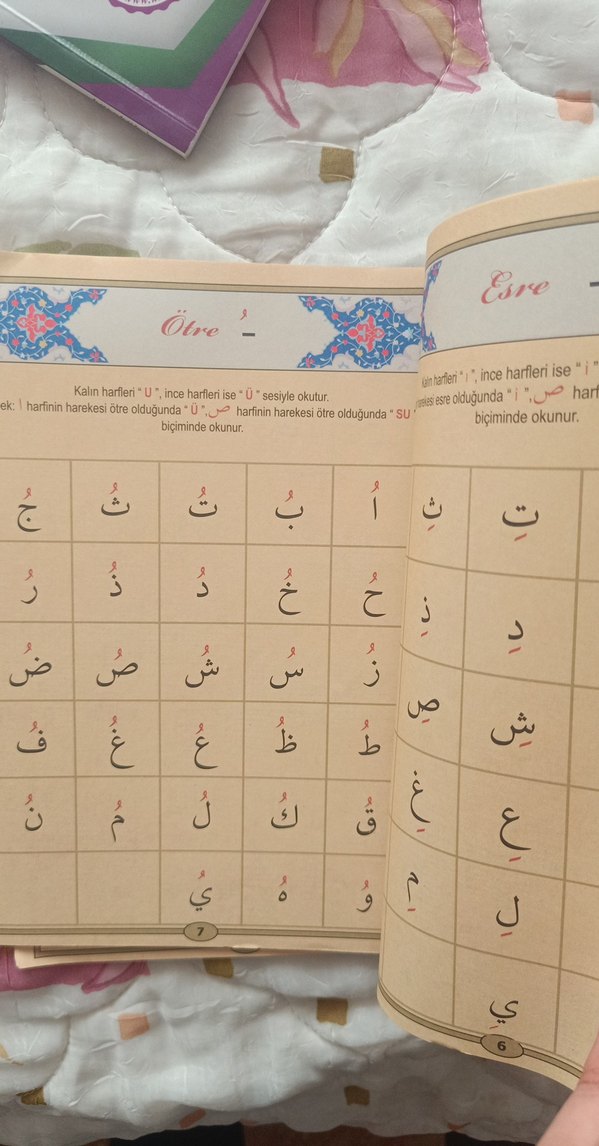 Esre
Kalın harfleri “ ı ”, ince harfleri ise “ i ”
esre olduğunda “ i ”, ص
biçiminde okunur.
تِ ثِ
دِ ذِ
شِ صِ
عِ غِ
لِ مِ
يِ
6
Ötre ـُ
Kalın harfleri “ U ”, ince harfleri ise “ Ü ” sesiyle okutur.
ا harfinin harekesi ötre olduğunda “ Ü ”, ص harfinin harekesi ötre olduğunda “ SU ”
biçiminde okunur.
اُ بُ تُ ثُ جُ
حُ خُ دُ ذُ رُ
زُ سُ شُ صُ ضُ
طُ ظُ عُ غُ فُ
قُ كُ لُ مُ نُ
وُ هُ يُ
7